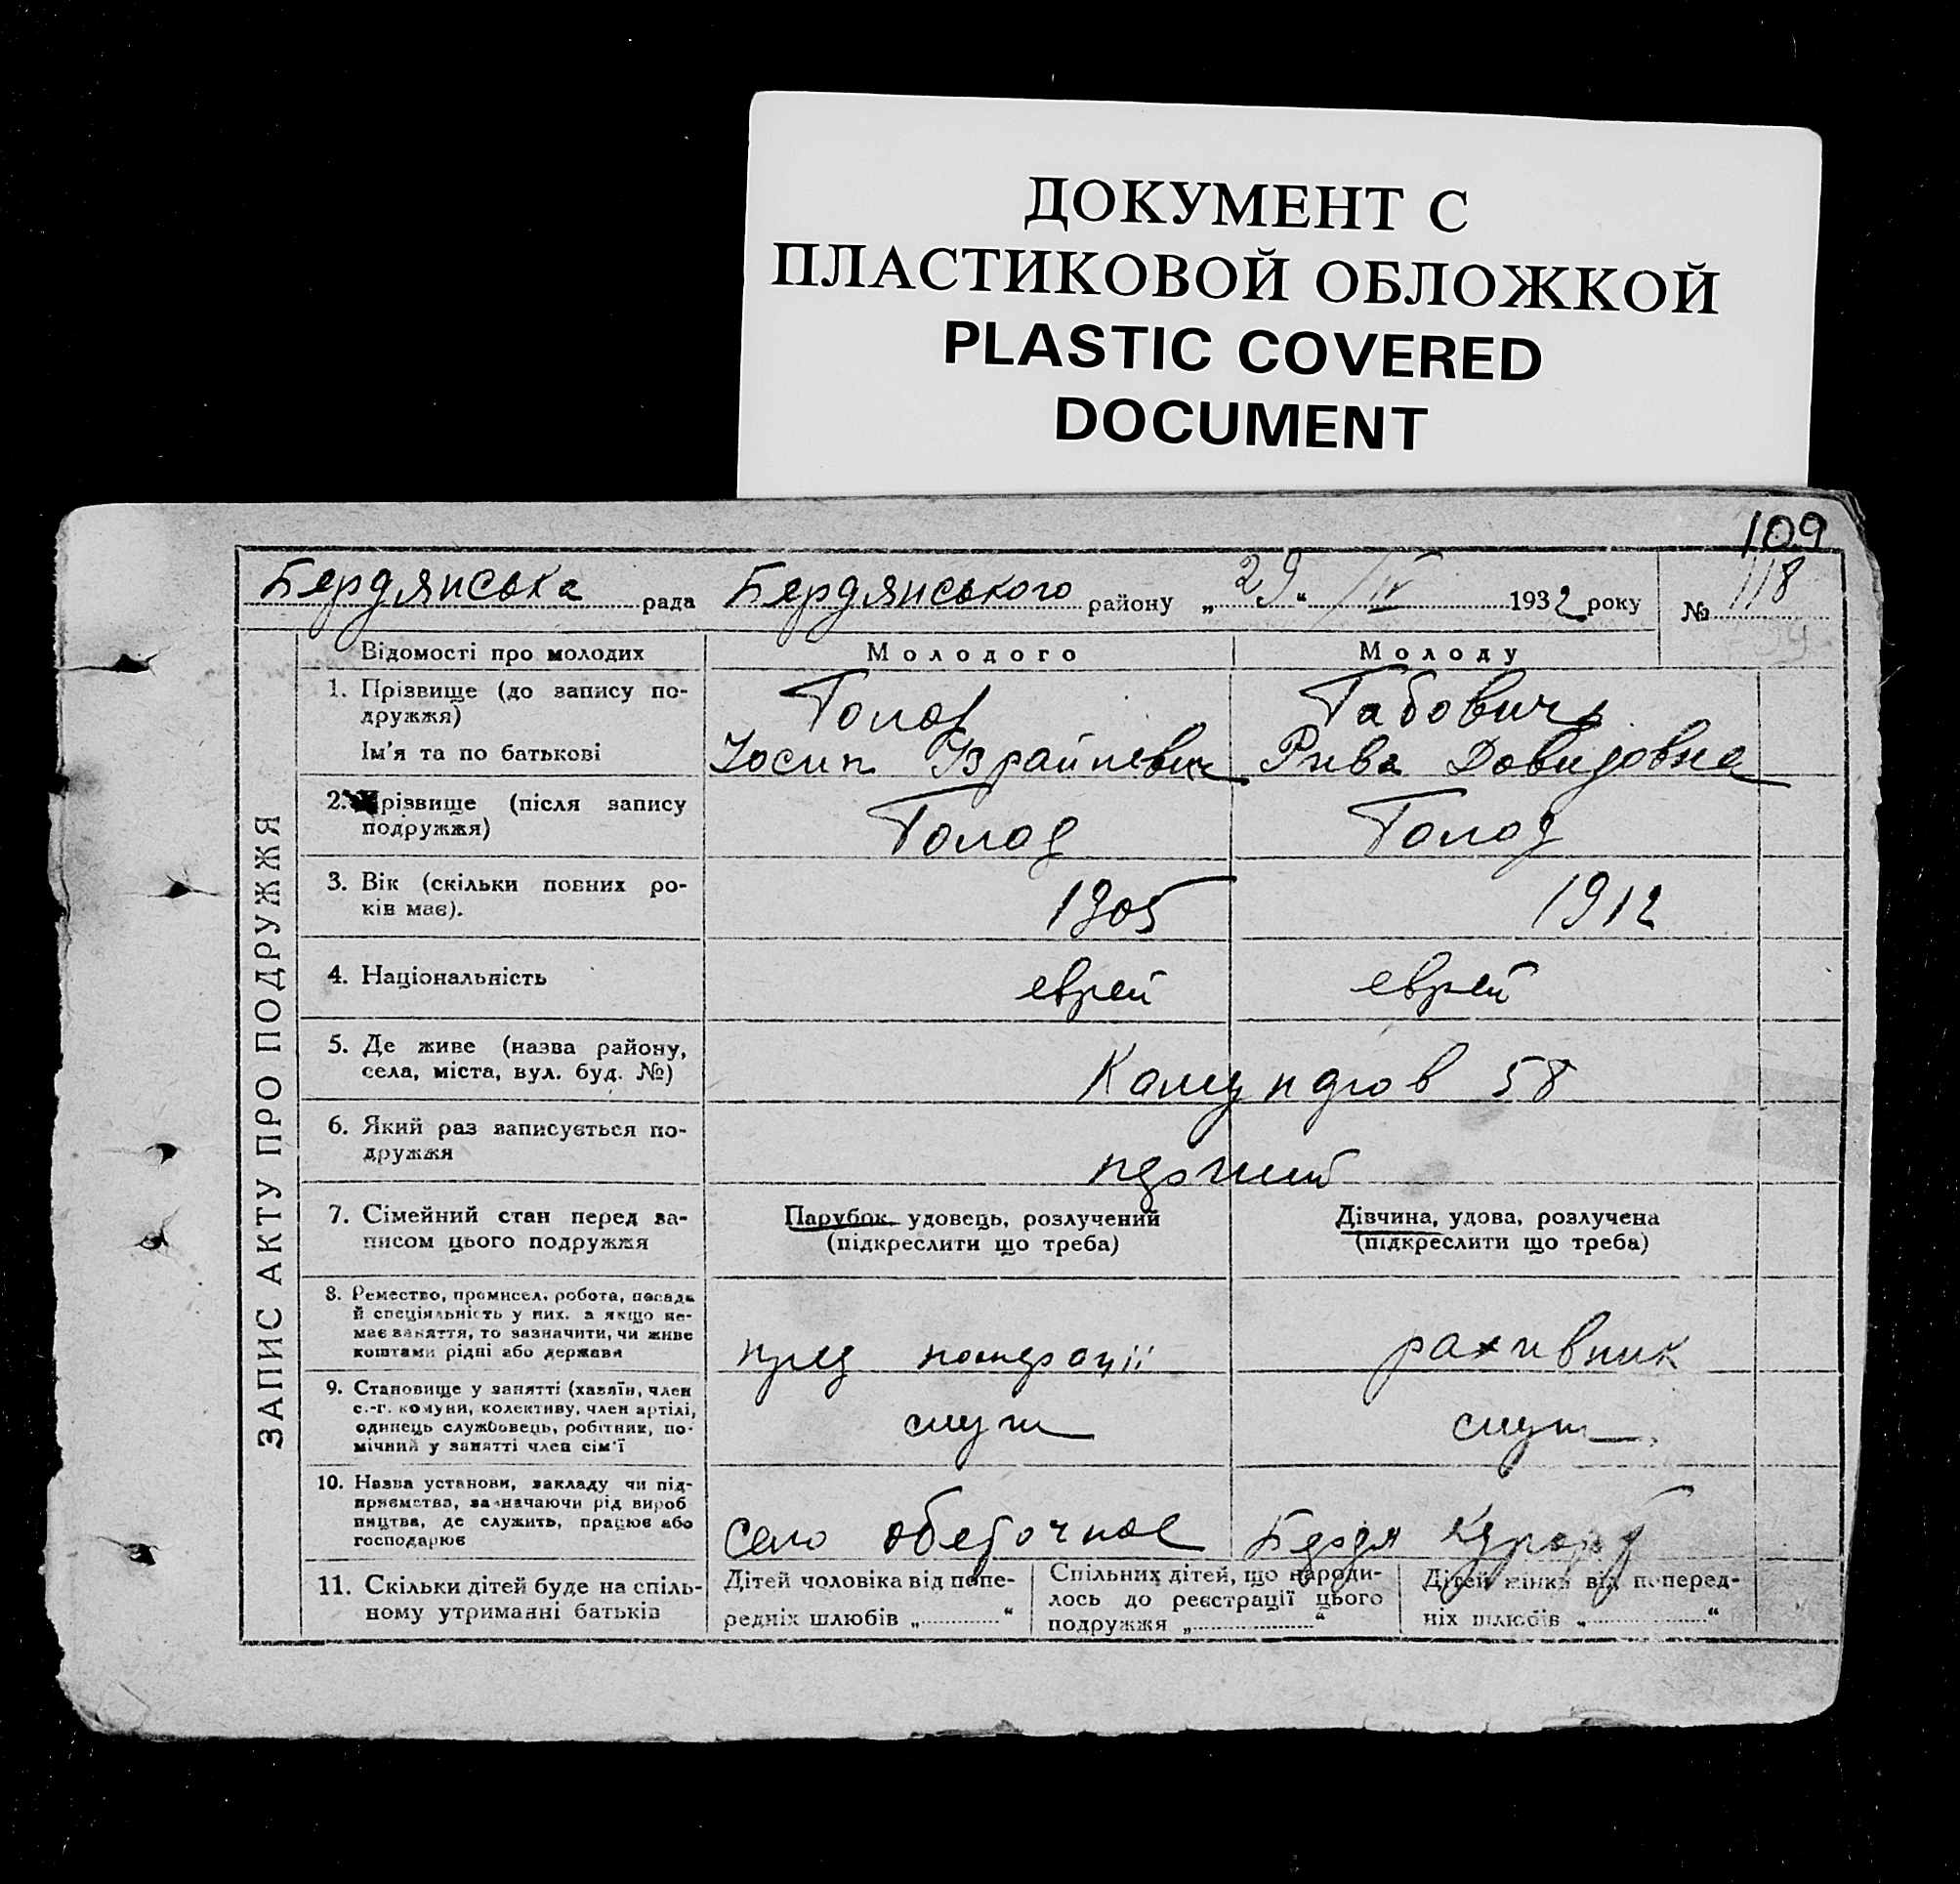 ДОКУМЕНТ С
ПЛАСТИКОВОЙ ОБЛОЖКОЙ
PLASTIC COVERED
DOCUMENT
109
Бердянська рада Бердянського району „29“ /IV 1932 року № 118
ЗАПИС АКТУ ПРО ПОДРУЖЖЯ
Відомості про молодих Молодого Молоду
1. Прізвище (до запису по-
дружжя)
Голод Габович
Ім'я та по батькові Йосип Ізрайлевич Рива Довидовна
2. Прізвище (після запису
подружжя)
Голод Голод
3. Вік (скільки повних ро-
ків має).
1905 1912
4. Національність еврей еврей
5. Де живе (назва району,
села, міста, вул. буд. №)
58
6. Який раз записується по-
дружжя
7. Сімейний стан перед за-
писом цього подружжя
Парубок, удовець, розлучений
(підкреслити що треба)
Дівчина, удова, розлучена
(підкреслити що треба)
8. Ремество, промисел, робота, посада
й спеціяльність у них, а якщо не-
має заняття, то зазначити, чи живе
коштами рідні або держави
рахивник
9. Становище у занятті (хазяїн, член
с.-г. комуни, колективу, член артілі,
одинець службовець, робітник, по-
мічний у занятті член сім'ї
служ служ
10. Назва установи, закладу чи під-
приємства, зазначаючи рід вироб
ництва, де служить, працює або
господарює
Село Обеточное Бердя Курорт
11. Скільки дітей буде на спіль-
ному утриманні батьків
Дітей чоловіка від попе-
редніх шлюбів „ “
Спільних дітей, що народи-
лось до реєстрації цього
подружжя „ “
Дітей жінки від поперед-
ніх шлюбів „ “